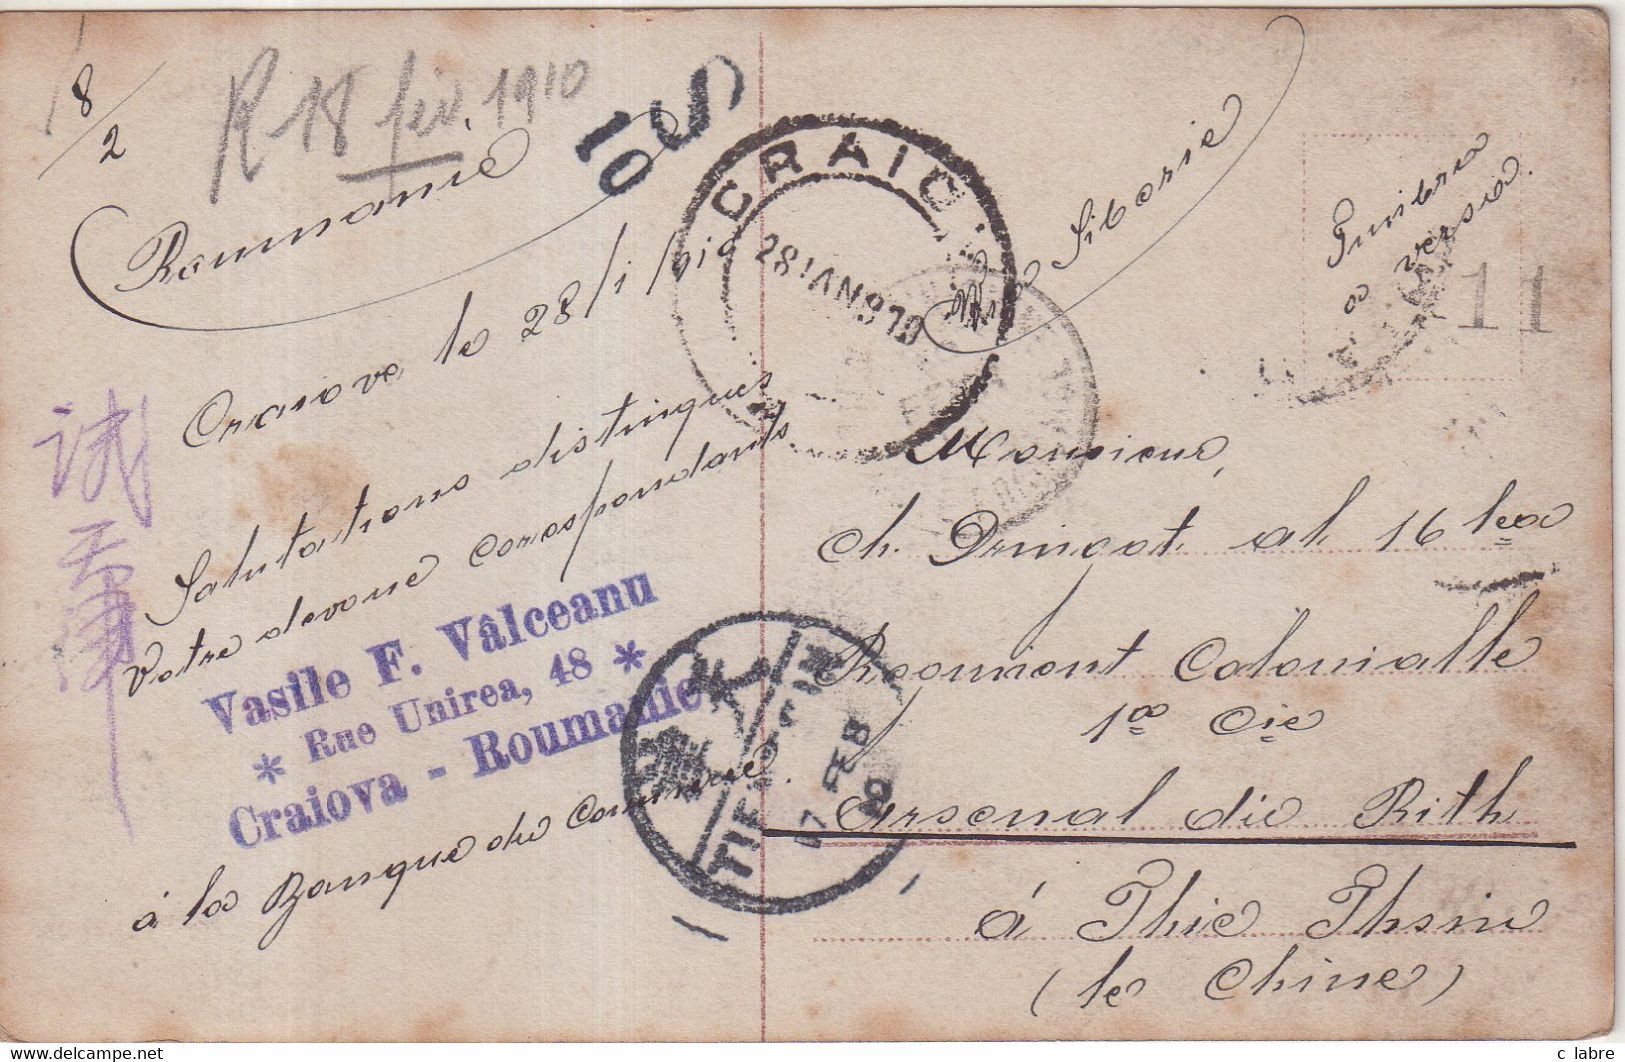 8/2
R 18 fev. 1910
10
S
Roumanie
CRAIO
28 IAN 910
Via Siberie
Timbra
a versa.
11
Craiova le 28/I/910
Salutations distingués
Votre devoué corespondants
Vasile F. Vâlceanu
* Rue Unirea, 48 *
Craiova - Roumanie
à la Banque de Commerce.
TIENTSIN
17 FEB
10
Monsieur,
Ch. Pringot al 16 lea
Regiment Colonialle
1e Cie
Arsenal die Rith
á Thie Thsin
(le Chine)
www.delcampe.net
c_labre